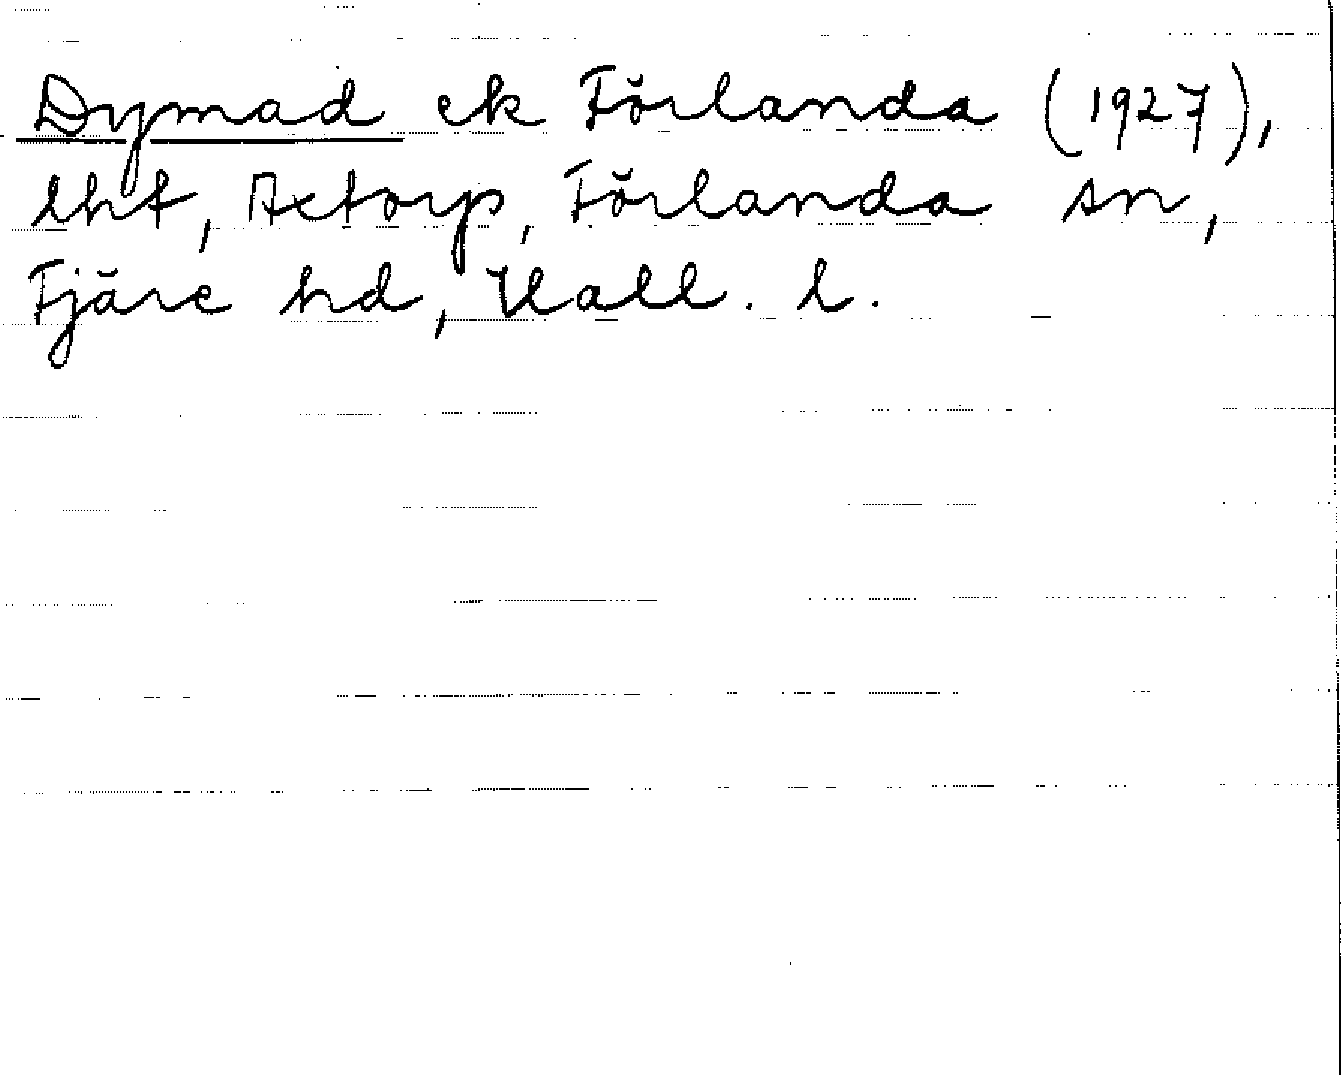 Dymad ek Förlanda (1927),
lht, Axtorp, Förlanda sn,
Fjäre hd, Hall. l.